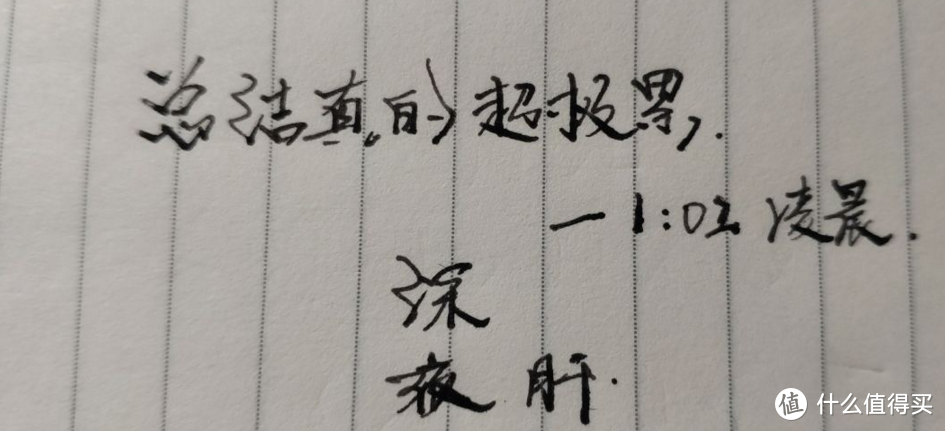 总结真的超极累,.
—1:02 凌晨.
深
夜 肝.
值 什么值得买